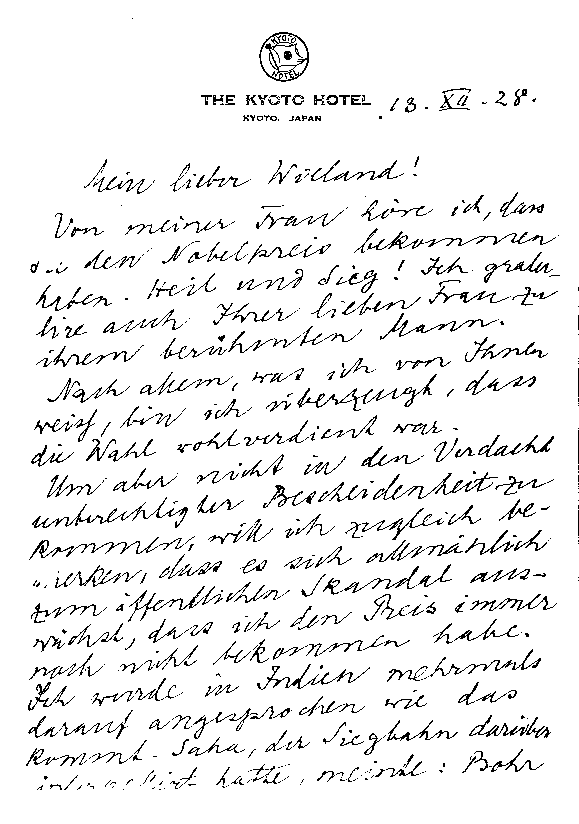 KYOTO
HOTEL
THE KYOTO HOTEL
KYOTO, JAPAN
13. XII. 28.
Mein lieber Wieland!
Von meiner Frau höre ich, dass
den Nobelpreis bekommen
haben. Heil und Sieg! Ich gratu-
lire auch Ihrer lieben Frau zu
ihrem berühmten Mann.
Nach allem, was ich von Ihnen
weiss, bin ich überzeugt, dass
die Wahl wohlverdient war.
Um aber nicht in den Verdacht
unberechtigter Bescheidenheit zu
kommen, will ich zugleich be-
merken, dass es sich allmählich
zum öffentlichen Skandal aus-
wächst, dass ich den Preis immer
noch nicht bekommen habe.
Ich wurde in Indien mehrmals
darauf angesprochen wie das
kommt. Saha, der Siegbahn darüber
hatte, meinte: Bohr